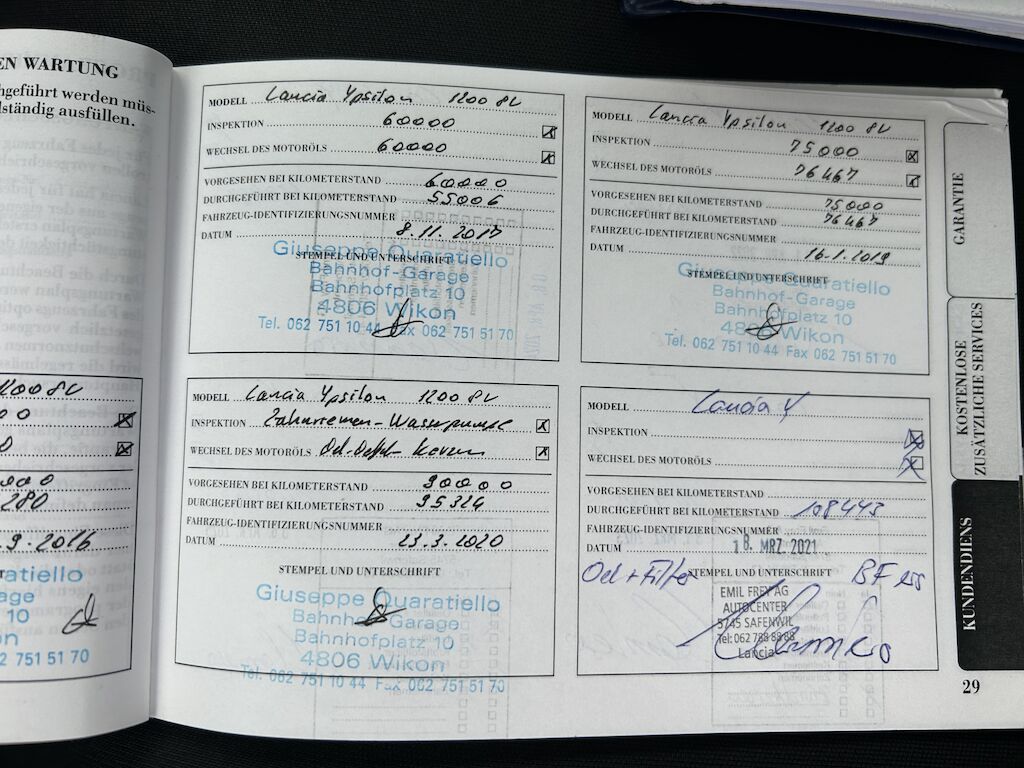 EN WARTUNG
hgeführt werden müs-
lständig ausfüllen.
1200 8V
280
.9.2016
aratiello
age
10
n
2 751 51 70
MODELL Lancia Ypsilon 1200 8V
INSPEKTION 60000
WECHSEL DES MOTORÖLS 60000
VORGESEHEN BEI KILOMETERSTAND 60000
DURCHGEFÜHRT BEI KILOMETERSTAND 55006
FAHRZEUG-IDENTIFIZIERUNGSNUMMER
DATUM 8.11.2017
STEMPEL UND UNTERSCHRIFT
Giuseppe Quaratiello
Bahnhof-Garage
Bahnhofplatz 10
4806 Wikon
Tel. 062 751 10 44 Fax 062 751 51 70
MODELL Lancia Ypsilon 1200 8V
INSPEKTION 75000
WECHSEL DES MOTORÖLS 76467
VORGESEHEN BEI KILOMETERSTAND 75000
DURCHGEFÜHRT BEI KILOMETERSTAND 76467
FAHRZEUG-IDENTIFIZIERUNGSNUMMER
DATUM 16.1.2019
STEMPEL UND UNTERSCHRIFT
Giuseppe Quaratiello
Bahnhof-Garage
Bahnhofplatz 10
4806 Wikon
Tel. 062 751 10 44 Fax 062 751 51 70
MODELL Lancia Ypsilon 1200 8V
INSPEKTION Zahnriemen-Wasserpumpe
WECHSEL DES MOTORÖLS
VORGESEHEN BEI KILOMETERSTAND 90000
DURCHGEFÜHRT BEI KILOMETERSTAND 95324
FAHRZEUG-IDENTIFIZIERUNGSNUMMER
DATUM 23.3.2020
STEMPEL UND UNTERSCHRIFT
Giuseppe Quaratiello
Bahnhof-Garage
Bahnhofplatz 10
4806 Wikon
Tel. 062 751 10 44 Fax 062 751 51 70
MODELL Lancia Y
INSPEKTION
WECHSEL DES MOTORÖLS
VORGESEHEN BEI KILOMETERSTAND
DURCHGEFÜHRT BEI KILOMETERSTAND 108443
FAHRZEUG-IDENTIFIZIERUNGSNUMMER
DATUM 18. MRZ 2021
Oel + Filter STEMPEL UND UNTERSCHRIFT BF
EMIL FREY AG
AUTOCENTER
5745 SAFENWIL
Tel: 062 788 88 88
Lancia
GARANTIE
KOSTENLOSE
ZUSÄTZLICHE SERVICES
KUNDENDIENS
29